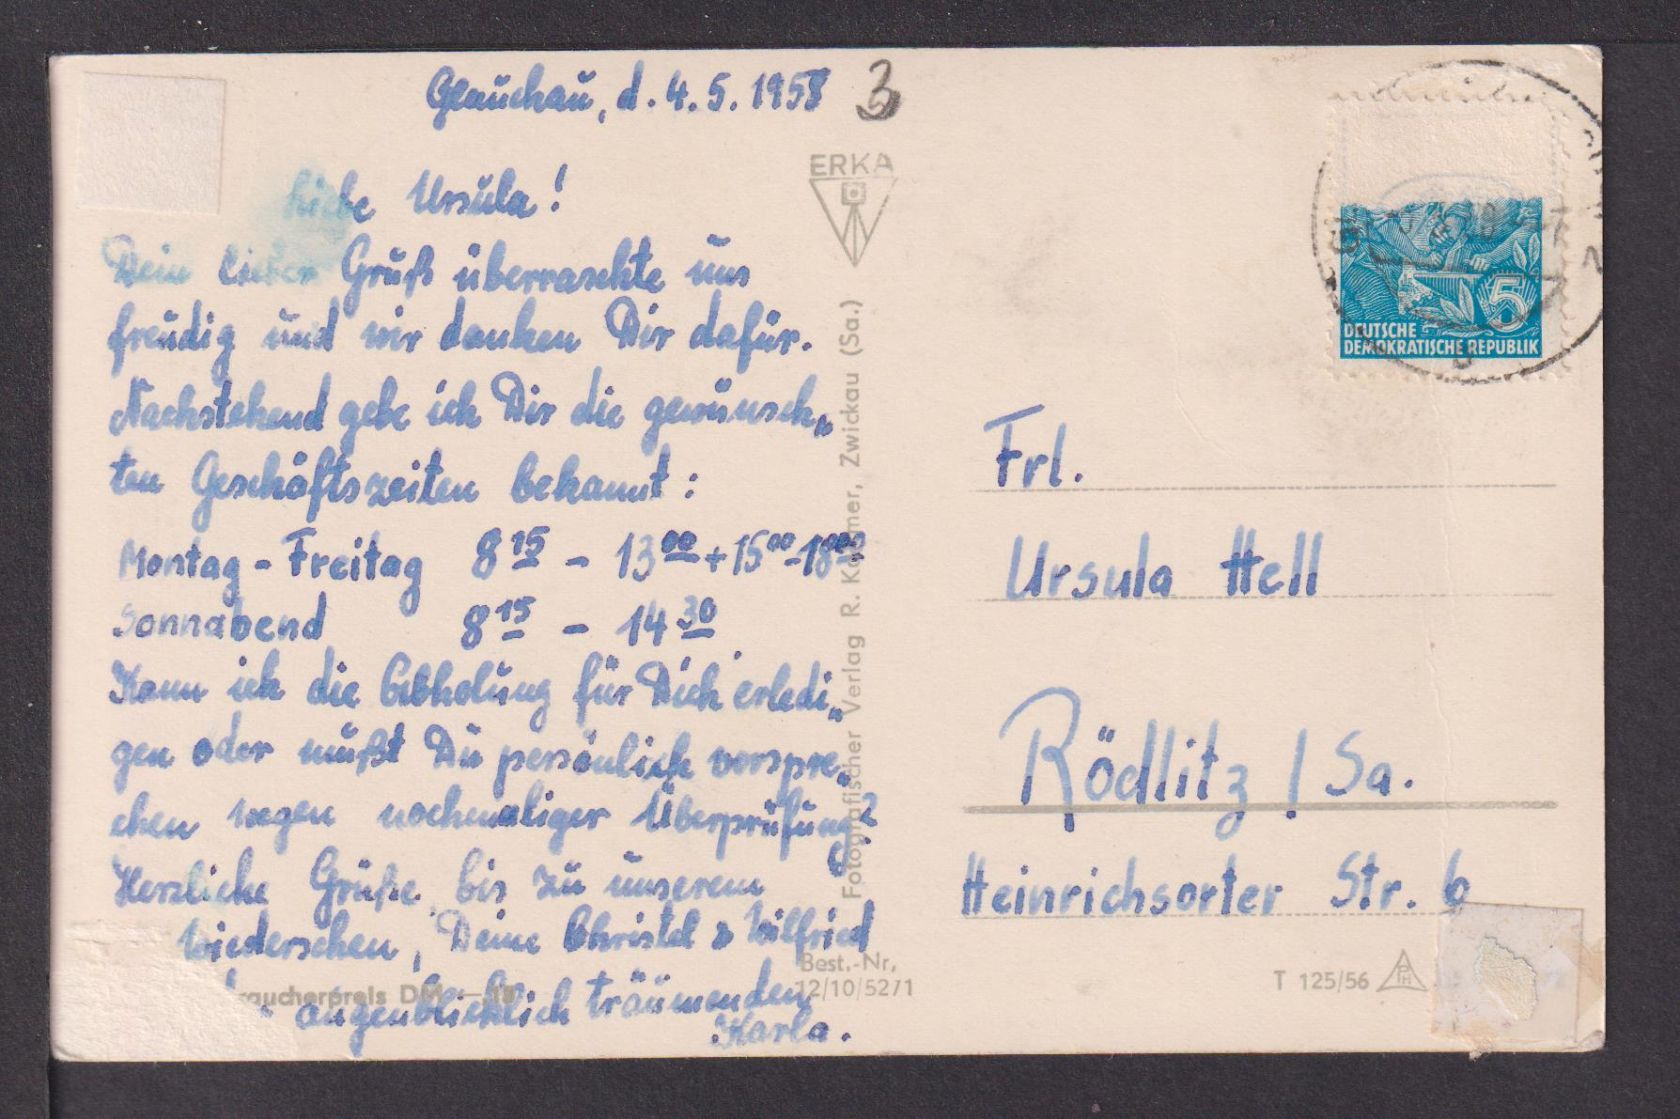 Glauchau, d. 4.5.1958
3
Liebe Ursula!
Dein lieber Gruß überraschte uns
freudig und wir danken Dir dafür.
Nachstehend gebe ich Dir die gewünsch„
ten Geschäftszeiten bekannt:
Montag - Freitag 8 15 - 13 00 + 15 00 - 18 00
Sonnabend 8 15 - 14 30
Kann ich die Abholung für Dich erledi„
gen oder mußt Du persönlich vorspre„
chen wegen nochmaliger Überprüfung?
Herzliche Grüße, bis zu unserem
Wiedersehen, Deine Christel & Wilfried
augenblicklich träumenden
Karla.
raucherpreis DM
ERKA
Fotografischer Verlag R. Kä mer, Zwickau (Sa.)
Best.-Nr.
12/10/5271
5
DEUTSCHE
DEMOKRATISCHE REPUBLIK
Frl.
Ursula Hell
Rödlitz / Sa.
Heinrichsorter Str. 6
T 125/56